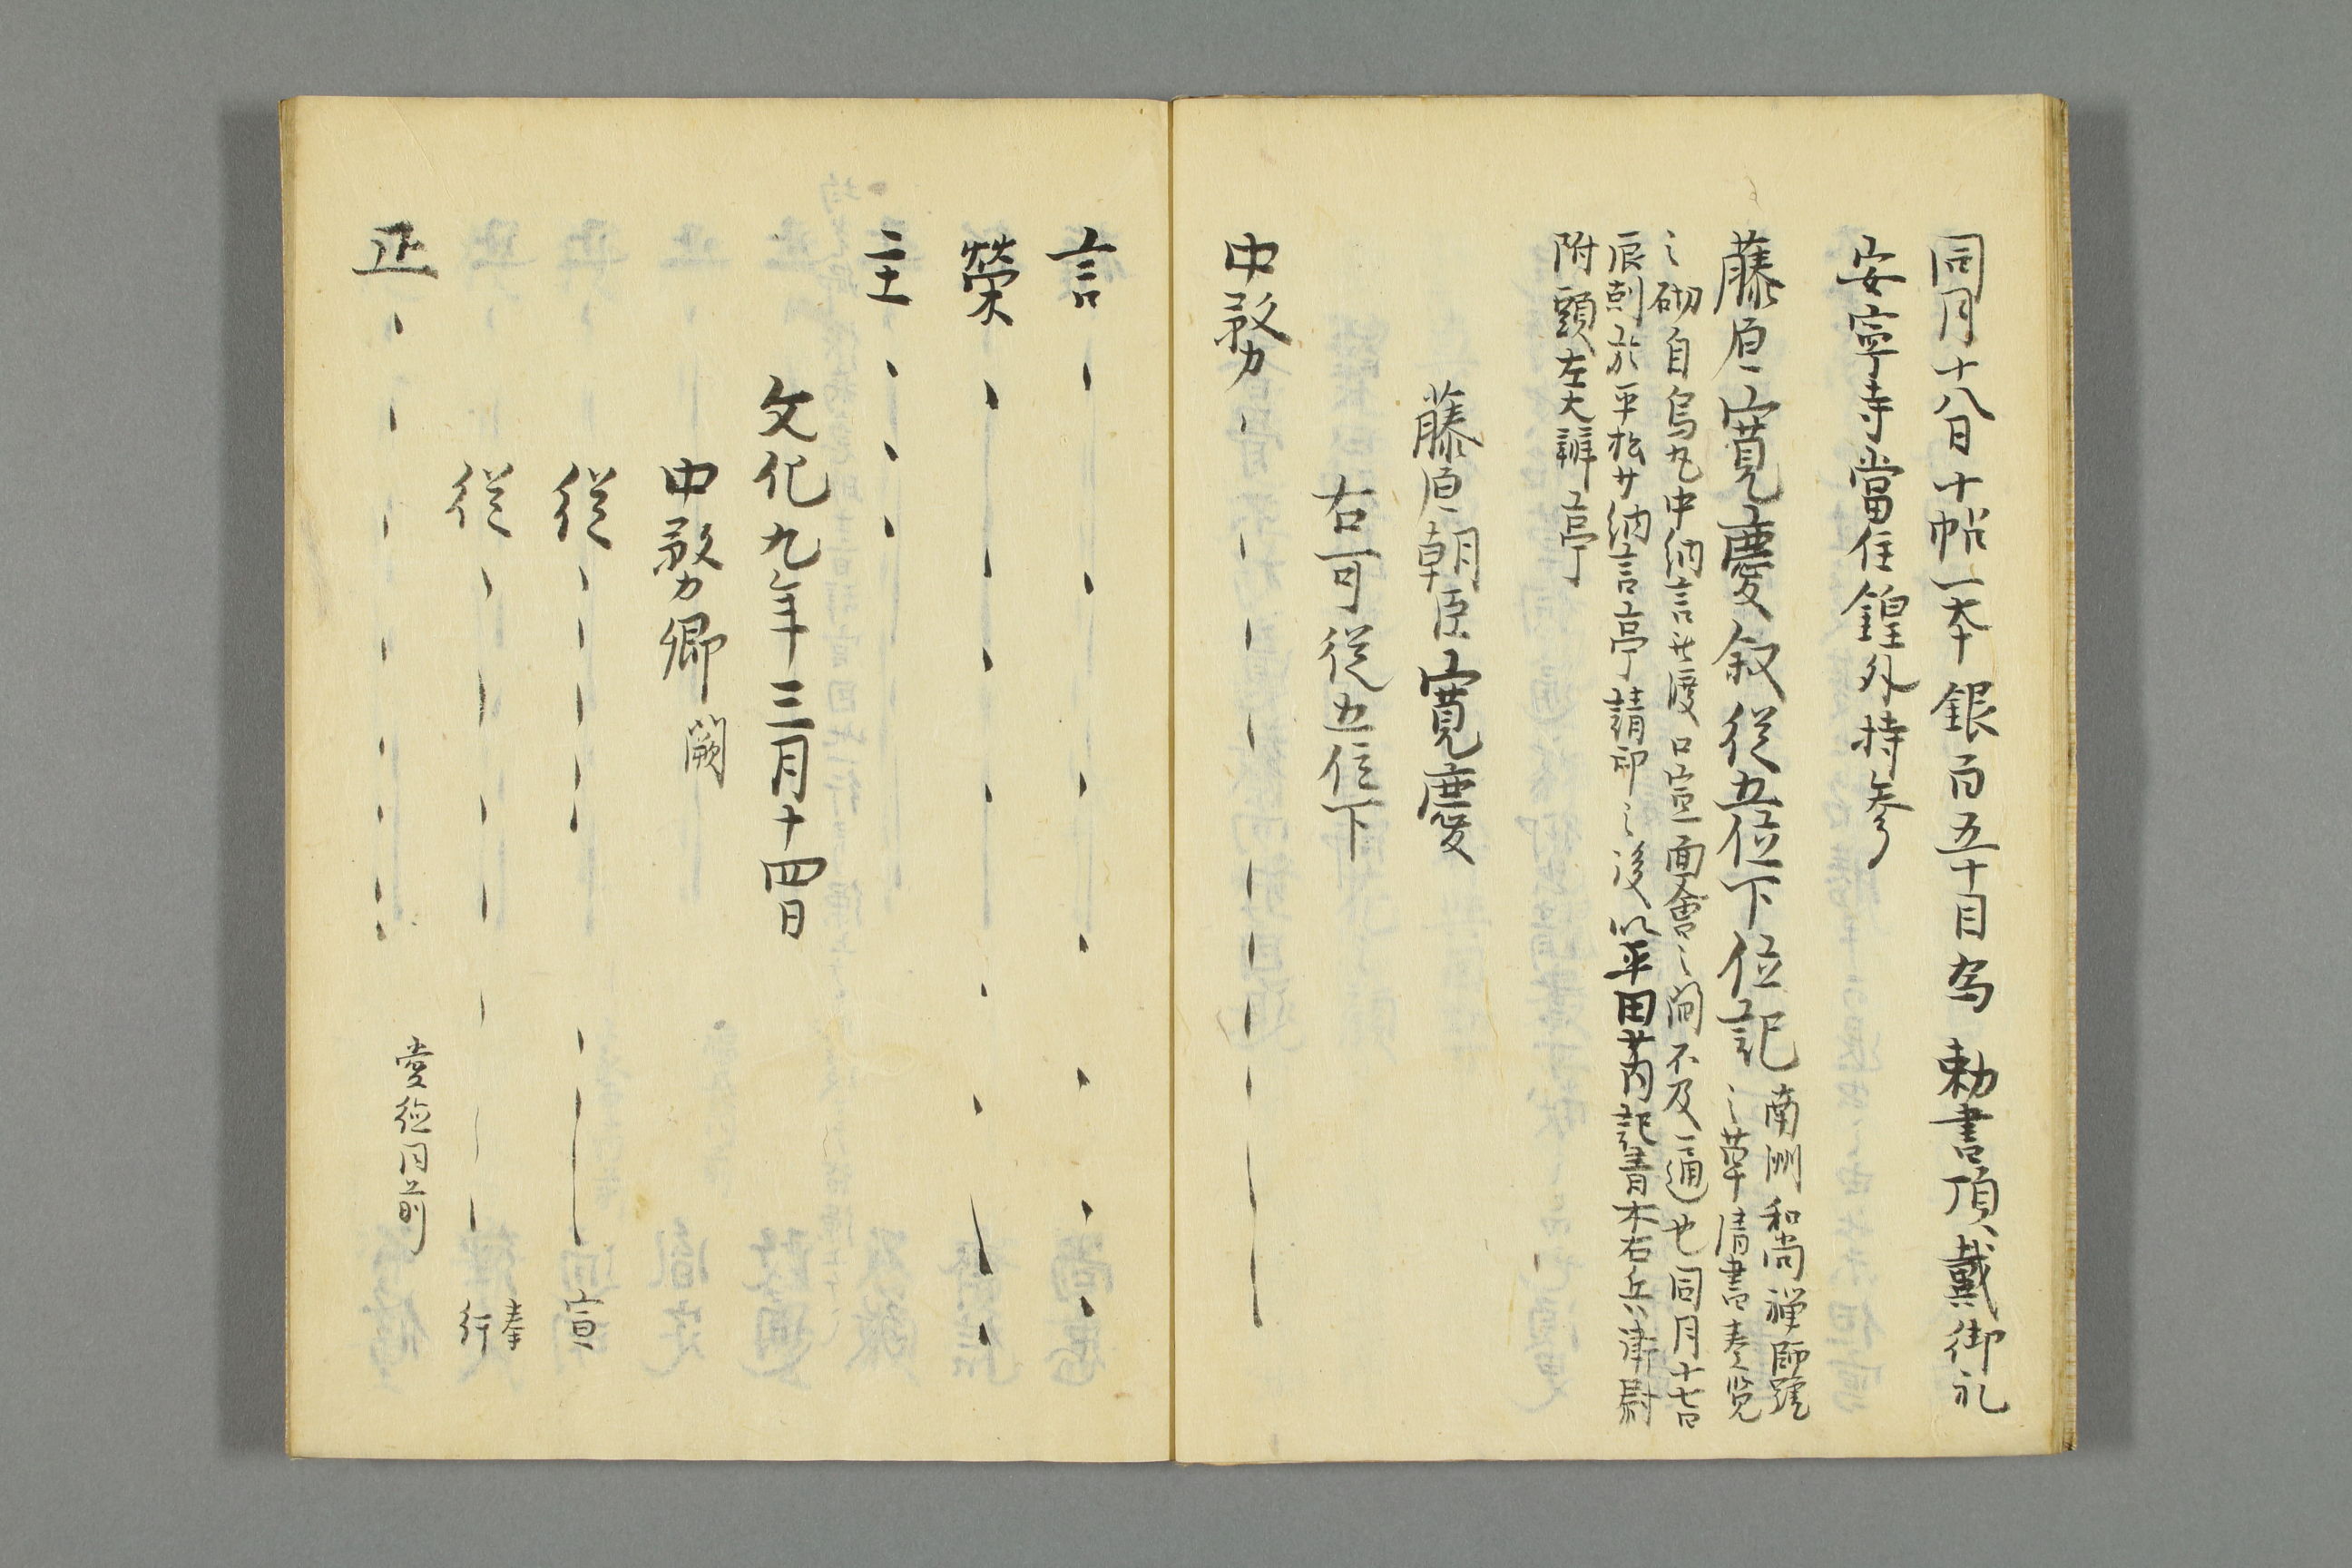 同月十八日十帖一本銀百五十目為 勅書頂戴御礼
安寧寺當住鍠外持参
藤原寛慶叙従五位下位記
南洲和尚禅師號
之草清書奏覧
之砌自烏丸中納言此度口宣一面會之間不及一通也同月十七日
辰剋於平松少納言亭請印之後以平田芮記青木右兵衛尉
附頭左大辨亭
藤原朝臣寛慶
右可従五位下
中務
言
榮
主
文化九年三月十四日
中務卿 闕
従 宣
従 奉行
正
堂 同前